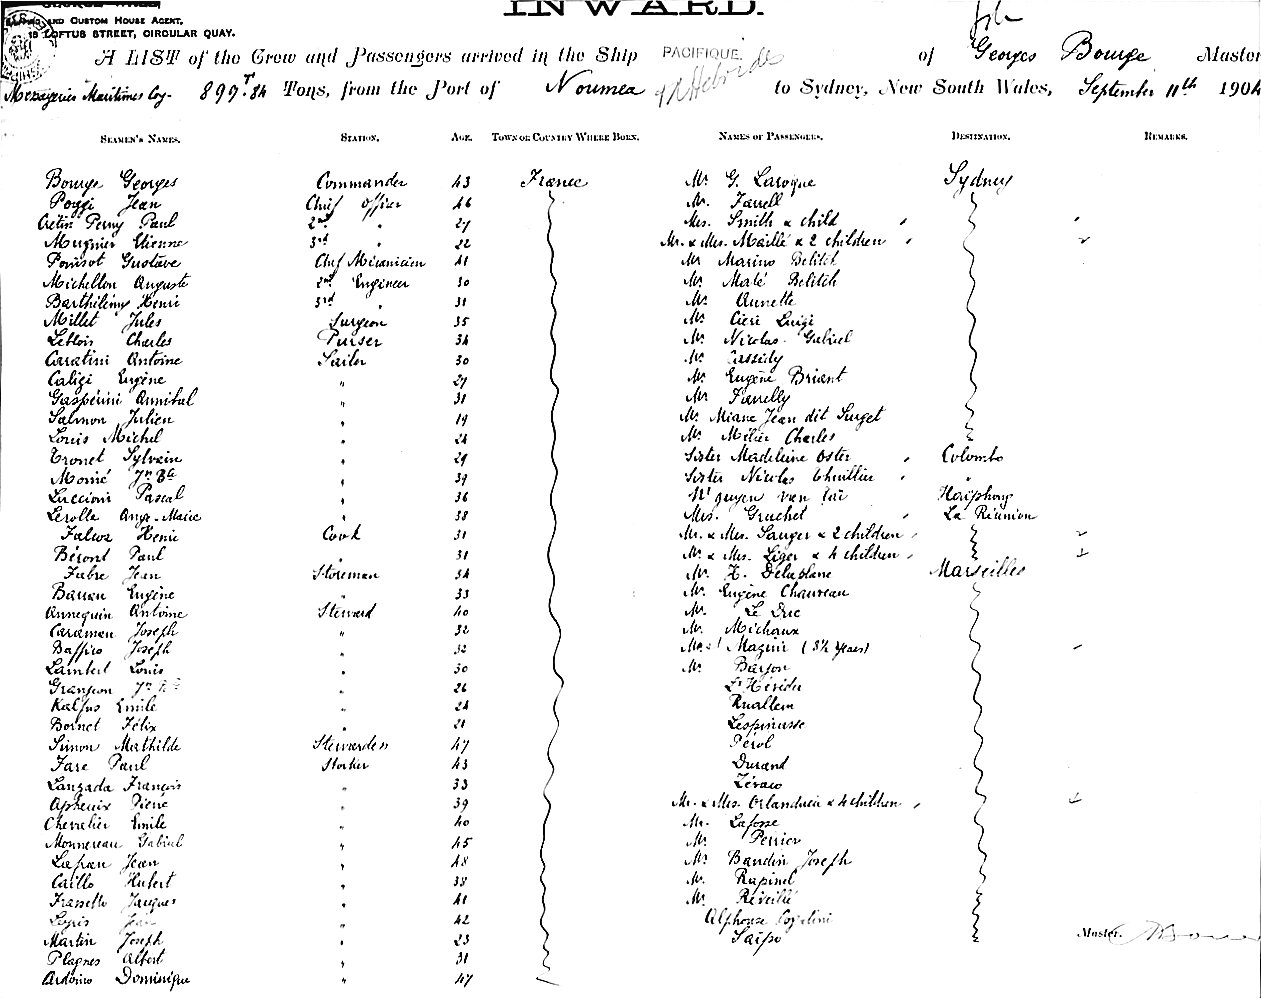 INWARD.
AND CUSTOM HOUSE AGENT,
LOFTUS STREET, CIRCULAR QUAY.
A LIST of the Crew and Passengers arrived in the Ship PACIFIQUE. of Georges Bourge Master
Messageries Maritimes Coy. 899.84 Tons, from the Port of Noumea & N Hebrides to Sydney, New South Wales, September 11th 1904
SEAMEN'S NAMES. STATION. AGE. TOWN OR COUNTRY WHERE BORN. NAMES OF PASSENGERS. DESTINATION. REMARKS.
Bourge Georges Commander 43 France Mr. G. Laroque Sydney
Poggi Jean Chief Officer 46 Mr. Farrell
Cretin Perny Paul 2nd " 27 Mrs. Smith & child
Mugnier Etienne 3rd " 22 Mr. & Mrs. Maillé & 2 children
Poinsot Gustave Chef Mécanicien 41 Mr Marino Belitch
Michellon Auguste 2nd Engineer 30 Mr. Maté Belitch
Barthélémy Henri 3rd " 31 Mr. Annette
Millet Jules Surgeon 35 Mr. Cieri Luigi
Leblois Charles Purser 34 Mr. Nicolas Gabriel
Carratini Antoine Sailor 30 Mr Cassidy
Caligi Eugène " 27 Mr. Eugène Briant
Gasperini Annibal " 31 Mr. Farrelly
Salmon Julien " 19 Mr Miane Jean dit Surget
Louis Michel " 24 Mr. Milier Charles
Tronet Sylvain " 29 Sister Madeleine Oster Colombo
Monié Jn Bte " 39 Sister Nicolas Thuillier "
Luccioni Pascal " 36 N'guyen van taï Haïphong
Lerolle Ange-Marie " 38 Mrs. Gruchet La Réunion
Falwa Henri Cook 31 Mr. & Mrs. Sauger & 2 children
Bérond Paul " 31 Mr & Mrs. Liger & 4 children
Fabre Jean Storeman 34 Mr. H. Delaplane Marseilles
Barrau Eugène " 33 Mr. Eugène Chauveau
Annequin Antoine Steward 40 Mr. Le Duc
Caraman Joseph " 32 Mr. Michaux
Baffico Joseph " 32 Magnin (3½ years)
Lambert Louis " 30 Mr. Barjon
Granjeon Jn Bte " 26 L'Héridu
Kalfus Emile " 24 Ruallem
Bornet Félix " 21 Lespinasse
Simon Mathilde Stewardess 47 Pérol
Fare Paul Stoker 43 Durand
Lanzada François " 33 Zérau
Apheuix Pierre " 39 Mr. & Mrs. Orlanducci & 4 children
Chevalier Emile " 40 Mr. Lafosse
Monnereau Gabriel " 45 Mr. Perrier
Lafran Jean " 48 Mr Baudin Joseph
Caillo Hubert " 38 Mr. Rapinel
Frassetto Jacques " 41 Mr. Réveillé
Jean " 42 Alphonse
Martin Joseph " 23 Saïpo Master.
Plagnes Albert " 31
Ardoino Dominique " 47